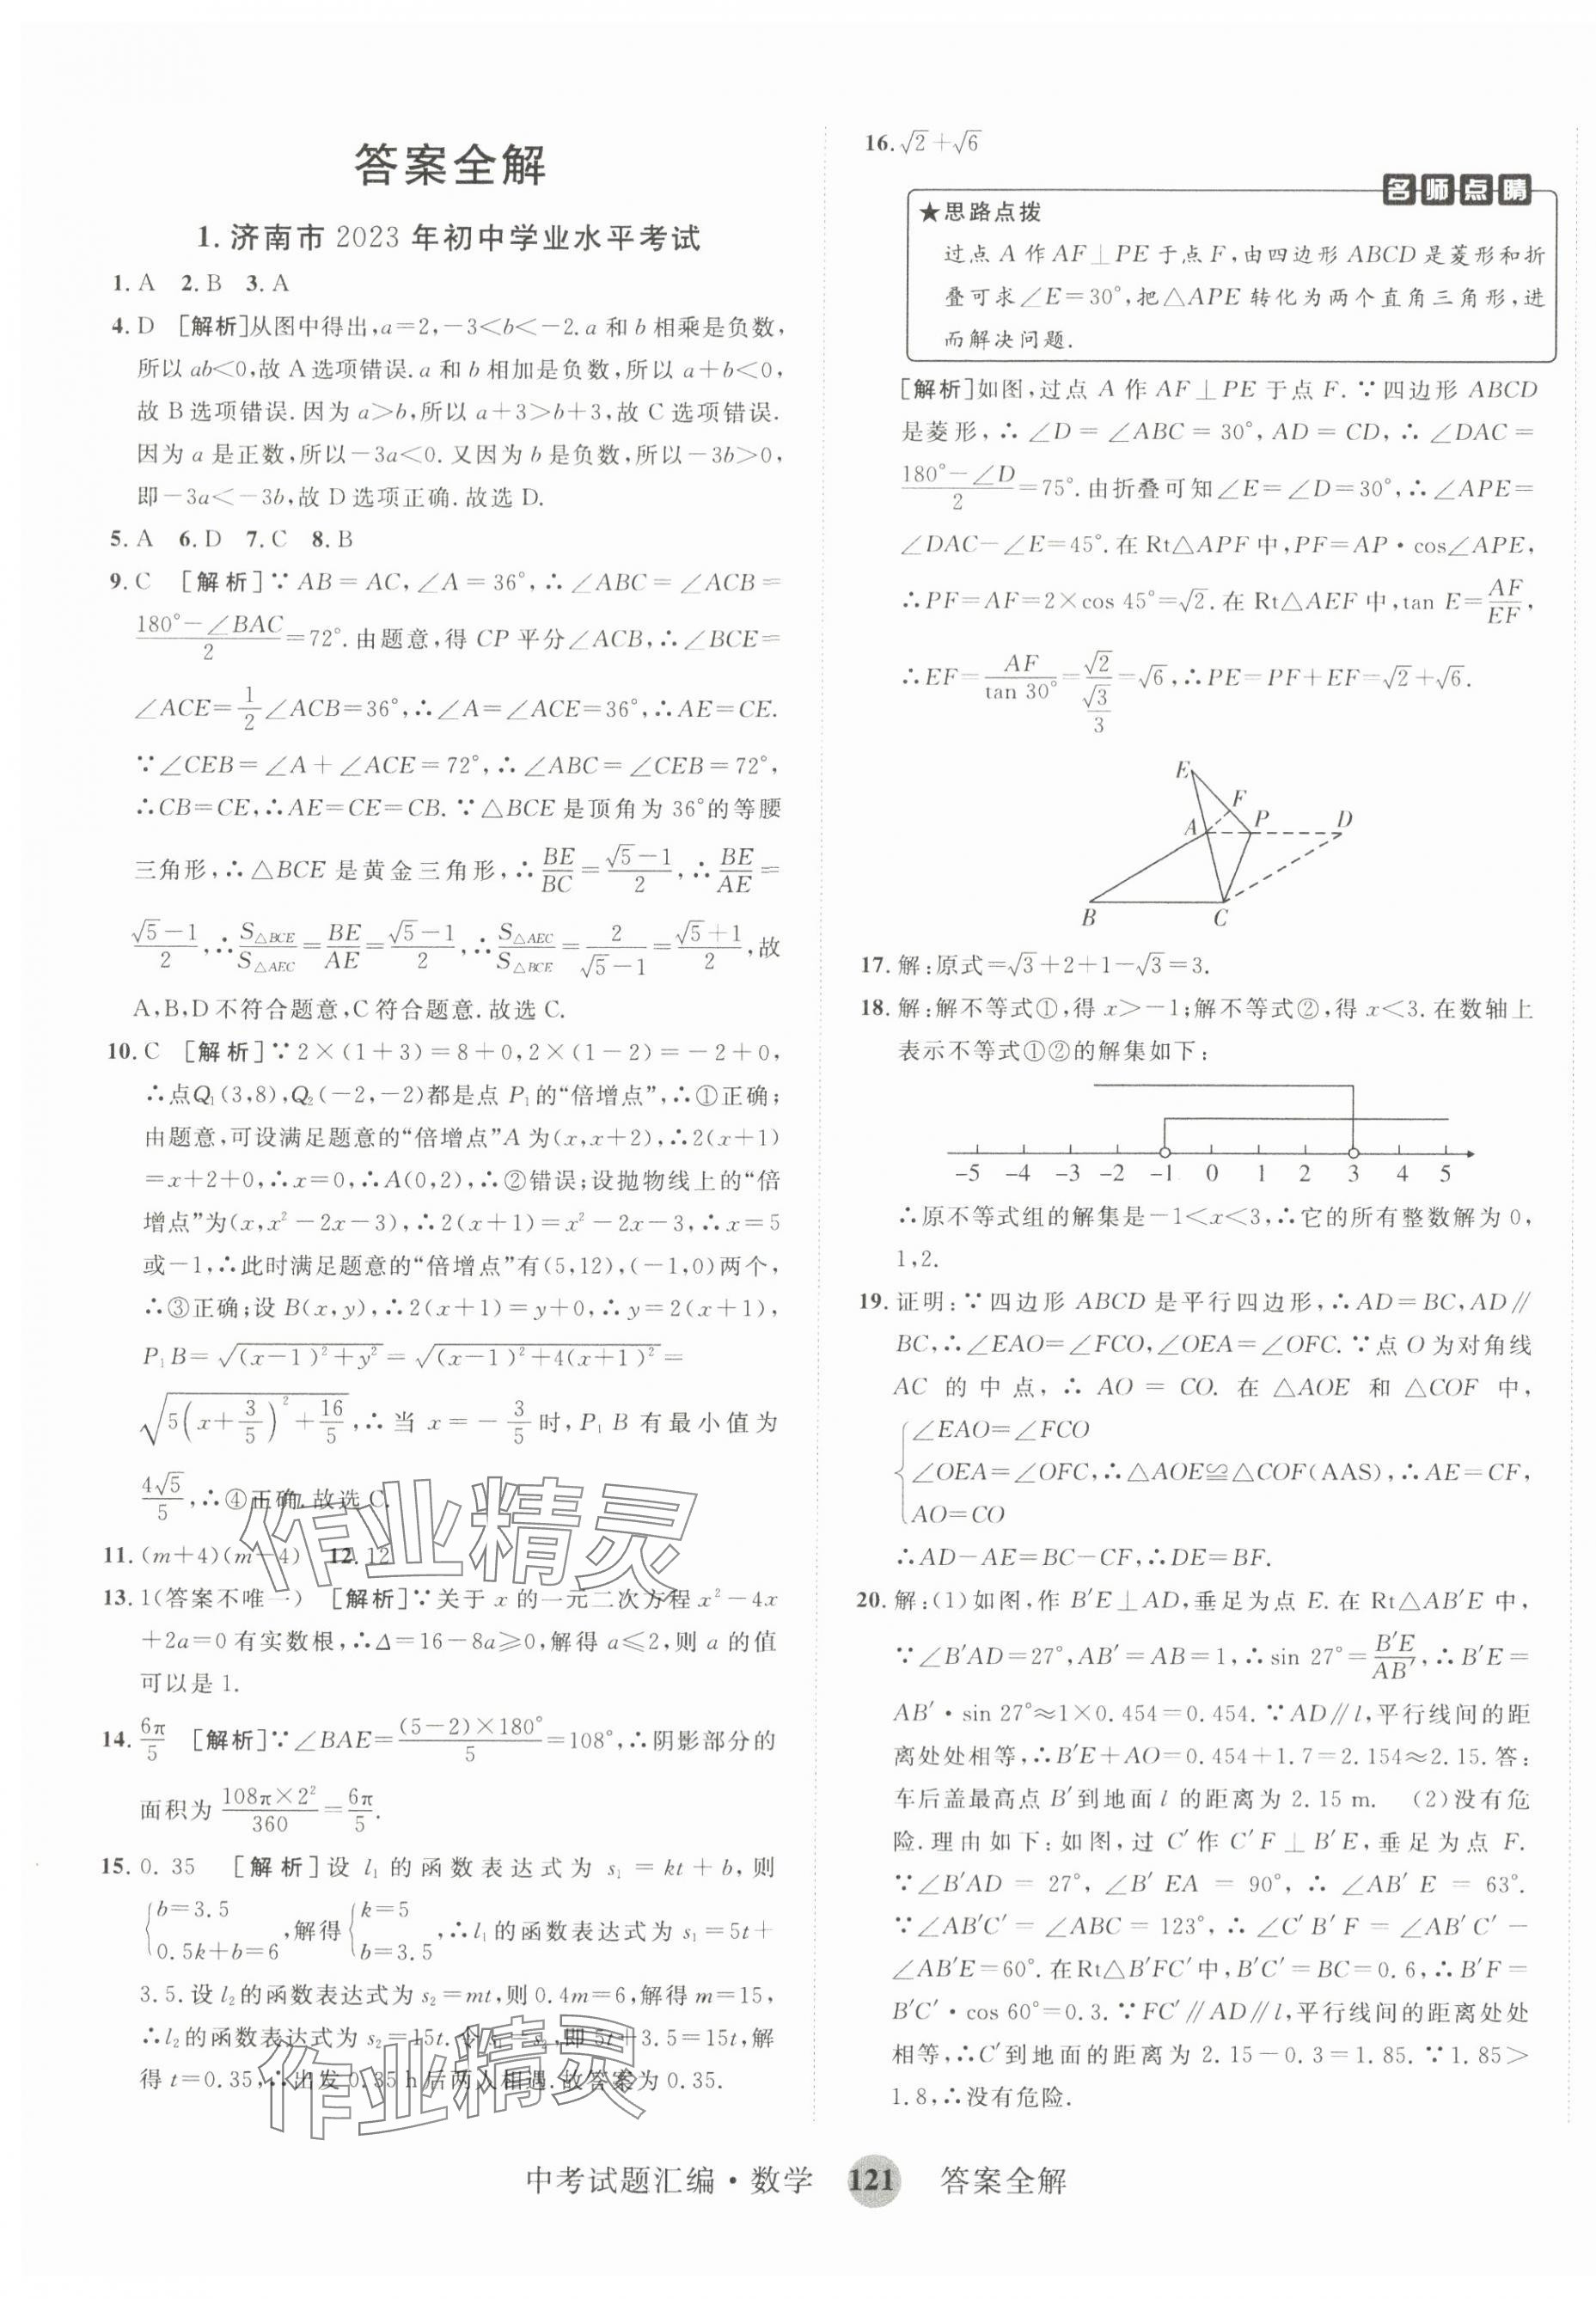 答案全解
1. 济南市 2023 年初中学业水平考试
1. A 2. B 3. A
4. D [解析]从图中得出,a=2,-3<b<-2.a 和 b 相乘是负数,
所以 ab<0,故 A 选项错误.a 和 b 相加是负数,所以 a+b<0,
故 B 选项错误.因为 a>b,所以 a+3>b+3,故 C 选项错误.
因为 a 是正数,所以-3a<0.又因为 b 是负数,所以-3b>0,
即-3a<-3b,故 D 选项正确.故选 D.
5. A 6. D 7. C 8. B
9. C [解析]∵AB=AC,∠A=36°,∴∠ABC=∠ACB=
(180°-∠BAC)/2=72°.由题意,得 CP 平分∠ACB,∴∠BCE=
∠ACE=1/2∠ACB=36°,∴∠A=∠ACE=36°,∴AE=CE.
∵∠CEB=∠A+∠ACE=72°,∴∠ABC=∠CEB=72°,
∴CB=CE,∴AE=CE=CB.∵△BCE 是顶角为 36°的等腰
三角形,∴△BCE 是黄金三角形,∴BE/BC=(√5-1)/2,∴BE/AE=
(√5-1)/2,∴S△BCE/S△AEC=BE/AE=(√5-1)/2,∴S△AEC/S△BCE=2/(√5-1)=(√5+1)/2,故
A,B,D 不符合题意,C 符合题意.故选 C.
10. C [解析]∵2×(1+3)=8+0,2×(1-2)=-2+0,
∴点Q₁(3,8),Q₂(-2,-2)都是点 P₁的“倍增点”,∴①正确;
由题意,可设满足题意的“倍增点”A 为(x,x+2),∴2(x+1)
=x+2+0,∴x=0,∴A(0,2),∴②错误;设抛物线上的“倍
增点”为(x,x²-2x-3),∴2(x+1)=x²-2x-3,∴x=5
或-1,∴此时满足题意的“倍增点”有(5,12),(-1,0)两个,
∴③正确;设 B(x,y),∴2(x+1)=y+0,∴y=2(x+1),
P₁B=√((x-1)²+y²)=√((x-1)²+4(x+1)²)=
√(5(x+3/5)²+16/5),∴当 x=-3/5时,P₁B 有最小值为
4√5/5,∴④正确.故选 C.
11. (m+4)(m-4) 12. 12
13. 1(答案不唯一) [解析]∵关于 x 的一元二次方程 x²-4x
+2a=0 有实数根,∴Δ=16-8a≥0,解得 a≤2,则 a 的值
可以是 1.
14. 6π/5 [解析]∵∠BAE=(5-2)×180°/5=108°,∴阴影部分的
面积为 108π×2²/360=6π/5.
15. 0.35 [解析]设 l₁ 的函数表达式为 s₁=kt+b,则
{b=3.5
0.5k+b=6,解得{k=5
b=3.5,∴l₁的函数表达式为 s₁=5t+
3.5.设 l₂的函数表达式为 s₂=mt,则 0.4m=6,解得 m=15,
∴l₂的函数表达式为 s₂=15t.令 s₁=s₂,即 5t+3.5=15t,解
得 t=0.35,∴出发 0.35 h 后两人相遇.故答案为 0.35.
16. √2+√6
名师点睛
★思路点拨
过点 A 作 AF⊥PE 于点 F,由四边形 ABCD 是菱形和折
叠可求∠E=30°,把△APE 转化为两个直角三角形,进
而解决问题.
[解析]如图,过点 A 作 AF⊥PE 于点 F.∵四边形 ABCD
是菱形,∴∠D=∠ABC=30°,AD=CD,∴∠DAC=
(180°-∠D)/2=75°.由折叠可知∠E=∠D=30°,∴∠APE=
∠DAC-∠E=45°.在 Rt△APF 中,PF=AP·cos∠APE,
∴PF=AF=2×cos 45°=√2.在 Rt△AEF 中,tan E=AF/EF,
∴EF=AF/tan 30°=√2/(√3/3)=√6,∴PE=PF+EF=√2+√6.
E
F
A P D
B C
17. 解:原式=√3+2+1-√3=3.
18. 解:解不等式①,得 x>-1;解不等式②,得 x<3.在数轴上
表示不等式①②的解集如下:
-5 -4 -3 -2 -1 0 1 2 3 4 5
∴原不等式组的解集是-1<x<3,∴它的所有整数解为 0,
1,2.
19. 证明:∵四边形 ABCD 是平行四边形,∴AD=BC,AD∥
BC,∴∠EAO=∠FCO,∠OEA=∠OFC.∵点 O 为对角线
AC 的中点,∴AO=CO.在△AOE 和△COF 中,
{∠EAO=∠FCO
∠OEA=∠OFC,∴△AOE≌△COF(AAS),∴AE=CF,
AO=CO
∴AD-AE=BC-CF,∴DE=BF.
20. 解:(1)如图,作 B′E⊥AD,垂足为点 E.在 Rt△AB′E 中,
∵∠B′AD=27°,AB′=AB=1,∴sin 27°=B′E/AB′,∴B′E=
AB′·sin 27°≈1×0.454=0.454.∵AD∥l,平行线间的距
离处处相等,∴B′E+AO=0.454+1.7=2.154≈2.15.答:
车后盖最高点 B′到地面 l 的距离为 2.15 m. (2)没有危
险.理由如下:如图,过 C′作 C′F⊥B′E,垂足为点 F.
∵∠B′AD=27°,∠B′EA=90°,∴∠AB′E=63°.
∵∠AB′C′=∠ABC=123°,∴∠C′B′F=∠AB′C′-
∠AB′E=60°.在Rt△B′FC′中,B′C′=BC=0.6,∴B′F=
B′C′·cos 60°=0.3.∵FC′∥AD∥l,平行线间的距离处处
相等,∴C′到地面的距离为 2.15-0.3=1.85.∵1.85>
1.8,∴没有危险.
作业精灵
作业精灵
中考试题汇编·数学 121 答案全解